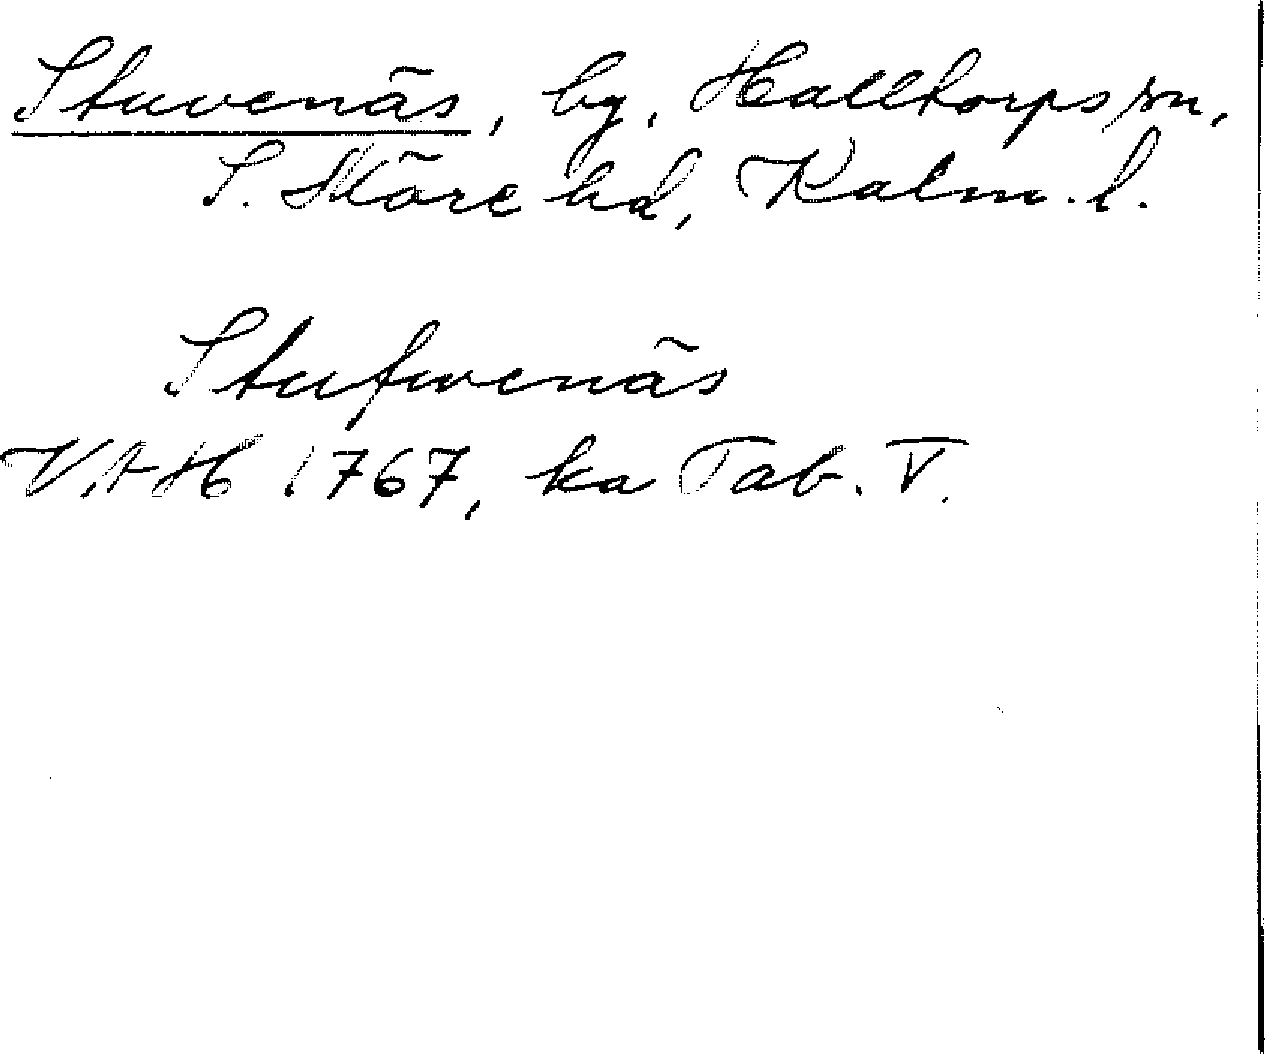 Stuvenäs, by, Halltorps sn,
S. Möre hd, Kalm. l.
Stufwenäs
VAH 1767, ka Tab. V.